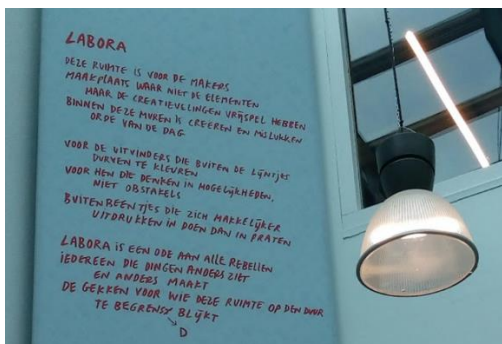 LABORA
DEZE RUIMTE IS VOOR DE MAKERS
MAAKPLAATS WAAR NIET DE ELEMENTEN
MAAR DE CREATIEVELINGEN VRIJSPEL HEBBEN
BINNEN DEZE MUREN IS CREËREN EN MISLUKKEN
ORDE VAN DE DAG
VOOR DE UITVINDERS DIE BUITEN DE LIJNTJES
DURVEN TE KLEUREN
VOOR HEN DIE DENKEN IN MOGELIJKHEDEN,
NIET OBSTAKELS
BUITENBEENTJES DIE ZICH MAKKELIJKER
UITDRUKKEN IN DOEN DAN IN PRATEN
LABORA IS EEN ODE AAN ALLE REBELLEN
IEDEREEN DIE DINGEN ANDERS ZIET
EN ANDERS MAAKT
DE GEKKEN VOOR WIE DEZE RUIMTE OP DEN DUUR
TE BEGRENSD BLIJKT
D